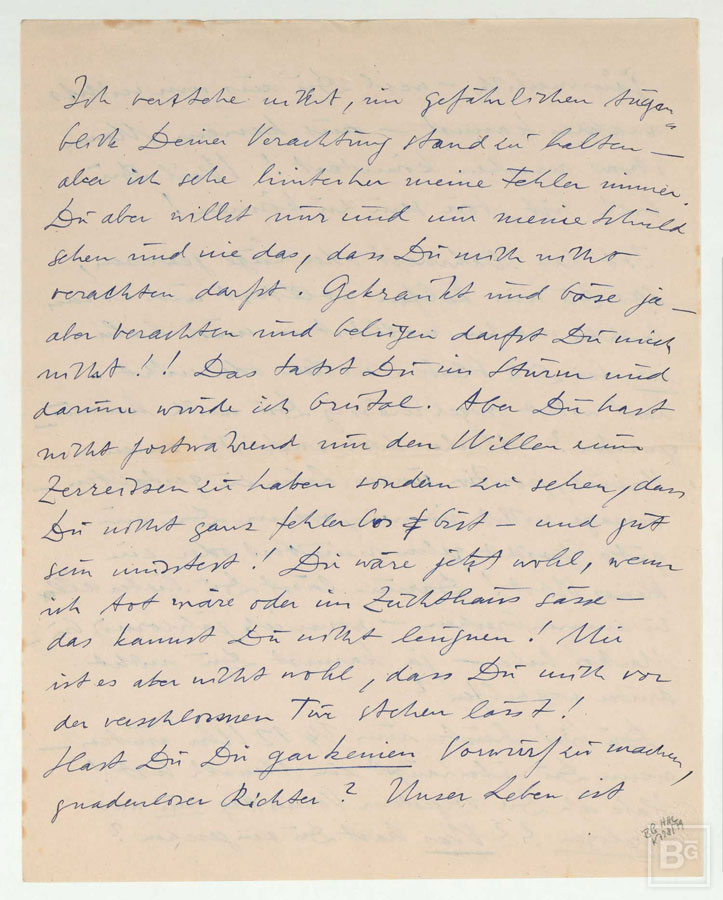 Ich verstehe nicht, im gefährlichen Augen=
blick Deiner Verachtung stand zu halten —
aber ich sehe hinterher meine Fehler immer.
Du aber willst nur und nur meine Schuld
sehen und nie das, dass Du mich nicht
verachten darfst. Gekränkt und böse ja —
aber verachten und belügen darfst Du mich
nicht!! Das tatst Du im Sturm und
darum wurde ich brutal. Aber Du hast
nicht fortwährend nur den Willen zum
Zerreissen zu haben sondern zu sehen, dass
Du nicht ganz fehlerlos bist — und gut
sein müsstest! Dir wäre jetzt wohl, wenn
ich tot wäre oder im Zuchthaus sässe —
das kannst Du nicht leugnen! Mir
ist es aber nicht wohl, dass Du mich vor
der verschlossnen Tür stehen lässt!
Hast Du Dir gar keinen Vorwurf zu machen,
gnadenloser Richter? Unser Leben ist
BG